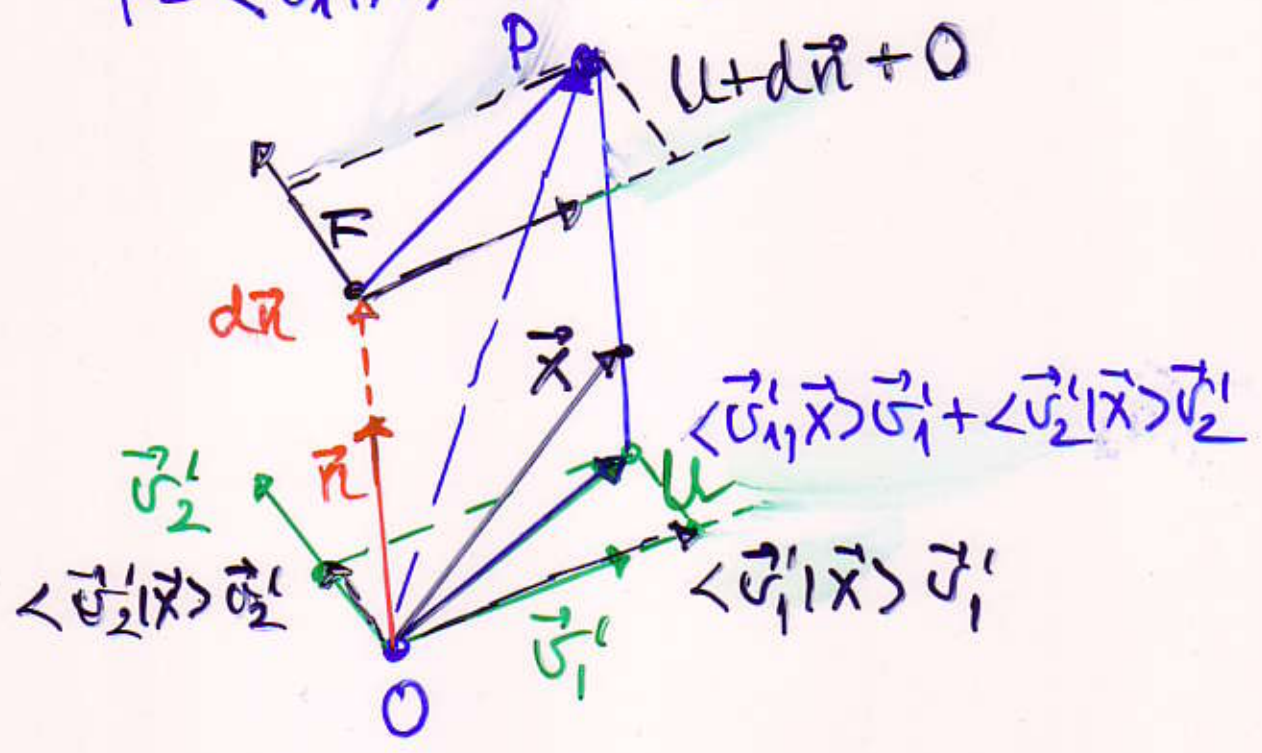 P
U+dn⃗+O
F
dn⃗
x⃗
<v⃗₁',x⃗>v⃗₁'+<v⃗₂'|x⃗>v⃗₂'
v⃗₂'
n⃗
U
<v⃗₂'|x⃗>v⃗₂'
<v⃗₁'|x⃗>v⃗₁'
v⃗₁'
O